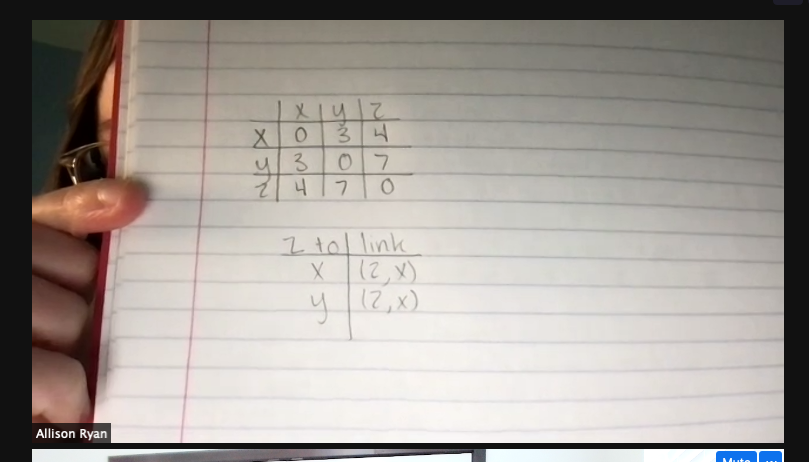 x y z
x 0 3 4
y 3 0 7
z 4 7 0
z to link
x (z, x)
y (z, x)
Allison Ryan
Mute ...